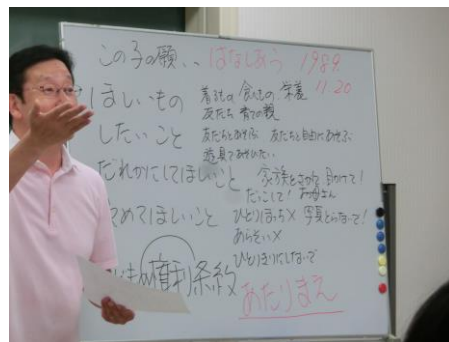 この子の願い、はなしあう 1989
11.20
ほしいもの 着もの 食べもの 栄養
友だち 育ての親
したいこと 友だちとあそぶ 友だちと自由にあそぶ
遊具であそびたい
だれかにしてほしいこと 家族をさがして 助けて!
だっこして! お母さん
やめてほしいこと ひとりぼっち× 写真とらないで!
あらそい×
ひとりきりにしないで
どもの権利条約 あたりまえ